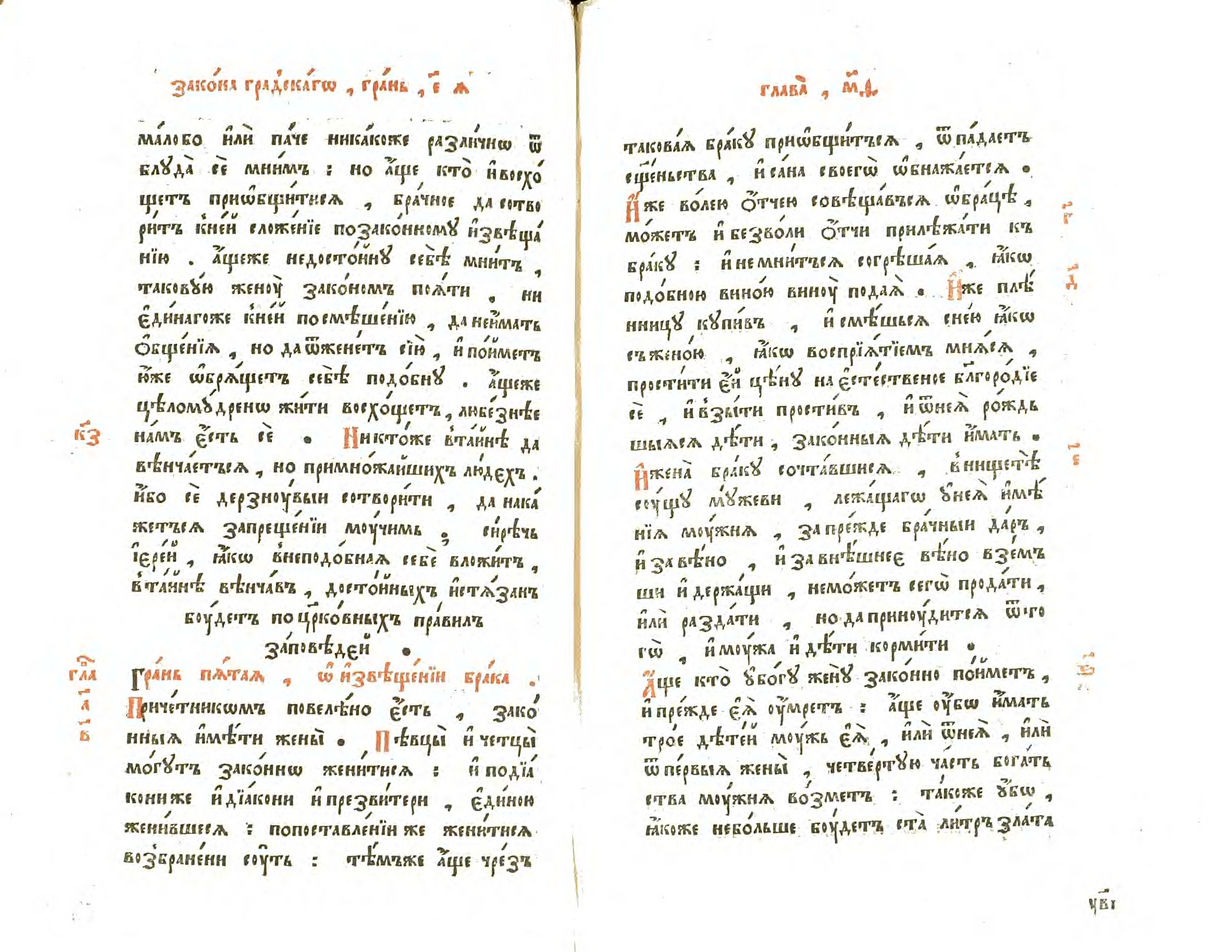 зако́на гра́дскагѡ , гра́нь , є҃ ѧ
ма́ло бо и҆лѝ па́че ника́коже разли́чнѡ ѿ
блꙋда̀ се̂ мни́мъ : но а҆́ще кто̀ и҆ восхо́
щетъ приѡбщи́тисѧ , бра́чное да сотво
ри́тъ к̾не́й сложе́нїе позако́нномꙋ и҆звѣща́
нїю . а҆́щеже недосто́йнꙋ себѣ̀ мни́тъ ,
такову́ю женоу̀ зако́номъ поѧ́ти , ни
є҆ди́нагоже к̾не́й посмѣше́нїю , да неи҆́мать
ѻ҆бще́нїѧ , но даѿжене́тъ сїю̀ , и҆ по́йметъ
ю҆́же ѡ҆брѧ́щетъ себѣ̀ подо́бнꙋ . а҆́щеже
цѣломꙋ́дренѡ жи́ти восхо́щетъ , любе́знѣе
на́мъ є҆́сть се̂ . Никто́же в̾та́йнѣ да
вѣнча́етъсѧ , но примно́жайшихъ лю́дєхъ .
и҆́бо се̂ дерзноу́выи сотвори́ти , да нака́
жетъсѧ запреще́нїи моу́чимъ , си́рѣчь
і҆ере́й , ꙗ҆́кѡ в̾неподо́бнаѧ себѐ вложи́тъ ,
в̾та́йнѣ вѣнча́въ , досто́йныхъ и҆стѧ́занъ
боу́детъ по цр҃ко́вныхъ пра́вилъ
за́повѣдєй .
Гра́нь пѧ́таѧ , ѡ и҆звѣще́нїи бра́ка .
Приче́тникѡмъ повеле́но є҆́сть , зако́
нныѧ и҆мѣ́ти жены̀ . Пѣвцы̀ и҆ четцы̀
мо́гутъ зако́ннѡ жени́тисѧ : и҆ подїа́
кони же и҆ дїа́кони и҆ презви́тери , є҆ди́ною
жени́вшесѧ : попоставле́нїи же жени́тисѧ
возбране́ни соу́ть : тѣ́мъже а҆́ще чре́зъ
к҃з
гла
в҃і
а
і
а
в
глава̀ , м҃ѳ
такова́ѧ бра́кꙋ приѡбщи́тъсѧ , ѿпа́даетъ
сщ҃е́ньства , и҆ са́на своегѡ̀ ѡ҆бнажа́етсѧ .
И҆́же во́лею ѻ҆́тчею совѣща́въсѧ ѡ҆бра́цѣ ,
мо́жетъ и҆ безво́ли ѻ҆́тчи прилѣжа́ти къ
бра́кꙋ : и҆ немни́тъсѧ согрѣша́ѧ , ꙗ҆́кѡ
подо́бною вино́ю виноу̀ пода́ѧ . И҆́же плѣ́
нницꙋ кꙋпи́въ , и҆ смѣ́шьсѧ сне́ю ꙗ҆́кѡ
съжено́ю , ꙗ҆́кѡ воспрїѧ́тїемъ мнѧ́сѧ ,
прости́ти є҆́й цѣ́нꙋ на є҆сте́ственое бл҃горо́дїе
се̂ , и҆ взы́ти прости́въ , и҆ ѿнеѧ̀ ро́ждь
шыѧсѧ дѣ́ти , зако́нныѧ дѣ́ти и҆́мать .
И҆жена̀ бра́кꙋ сочта́вшисѧ , в̾нищетѣ̀
соу́щꙋ мꙋ́жеви , лежа́щагѡ ᲂу҆неѧ̀ и҆мѣ́
нїѧ моу́жнѧ , за пре́жде бра́чныи да́ръ ,
и҆ за вѣ́но , и҆ за внѣ́шнеє вѣ́но взе́мъ
ши и҆ держа́щи , немо́жетъ сегѡ̀ прода́ти ,
и҆лѝ разда́ти , но да приноу́дитсѧ ѿ то
гѡ̀ , и҆ моу́жа и҆ дѣ́ти корми́ти .
А҆́ще кто̀ ᲂу҆бо́гꙋ женꙋ̀ зако́нно по́йметъ ,
и҆ пре́жде є҆ѧ̀ ᲂу҆́мретъ : а҆́ще ᲂу҆́бѡ и҆́мать
тро́е дѣте́й моу́жь є҆ѧ̀ , и҆лѝ ѿнеѧ̀ , и҆лѝ
ѿпе́рвыѧ жены̀ , четве́ртую ча́сть бога́ть
ства моу́жнѧ во́зметъ : та́коже ᲂу҆́бѡ ,
ꙗ҆́коже небо́льше боу́детъ ста̀ ли́тръ зла́та
г҃
д҃
є҃
ꙋ҃ві